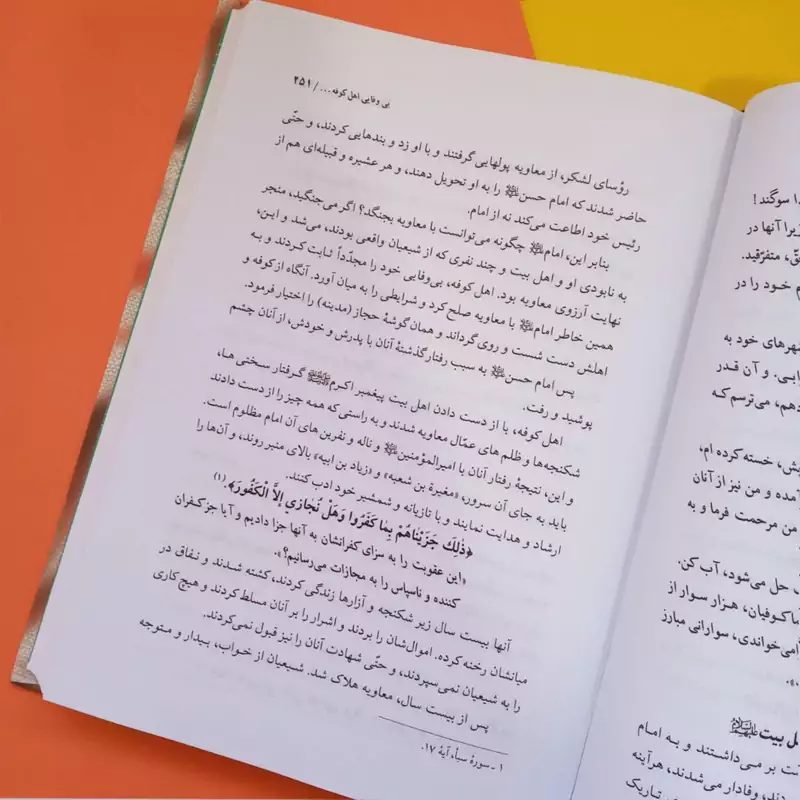 بی وفایی اهل کوفه... / ۲۵۱
رؤسای لشکر، از معاویه پولهایی گرفتند و با او زد و بندهایی کردند، و حتّی
حاضر شدند که امام حسن﷼ را به او تحویل دهند، و هر عشیره و قبیله‌ای هم از
رئیس خود اطاعت می‌کند نه از امام.
بنابر این، امام چگونه می‌توانست با معاویه بجنگد؟ اگر می‌جنگید، منجر
به نابودی او و اهل بیت و چند نفری که از شیعیان واقعی بودند، می‌شد و این،
نهایت آرزوی معاویه بود. اهل کوفه، بی‌وفایی خود را مجدّداً ثابت کردند و به
همین خاطر امام با معاویه صلح کرد و شرایطی را به میان آورد. آنگاه از کوفه و
اهلش دست شست و روی گرداند و همان گوشهٔ حجاز (مدینه) را اختیار فرمود.
پس امام حسن به سبب رفتار گذشتهٔ آنان با پدرش و خودش، از آنان چشم
پوشید و رفت.
اهل کوفه، با از دست دادن اهل بیت پیغمبر اکرم گرفتار سختی ها،
شکنجه‌ها و ظلم های عمّال معاویه شدند و به راستی که همه چیز را از دست دادند
و این، نتیجهٔ رفتار آنان با امیرالمؤمنین و ناله و نفرین های آن امام مظلوم است.
باید به جای آن سرور، «مغیرة بن شعبه» و «زیاد بن ابیه» بالای منبر روند، و آن‌ها را
ارشاد و هدایت نمایند و با تازیانه و شمشیر خود ادب کنند.
﴿ذٰلِكَ جَزَيْنَاهُمْ بِمَا كَفَرُوا وَهَلْ نُجَازِي إِلَّا الْكَفُورَ﴾.(۱)
«این عقوبت را به سزای کفرانشان به آنها جزا دادیم و آیا جز کفران
کننده و ناسپاس را به مجازات می‌رسانیم؟».
آنها بیست سال زیر شکنجه و آزارها زندگی کردند، کشته شدند و نفاق در
میانشان رخنه کرده. اموال‌شان را بردند و اشرار را بر آنان مسلط کردند و هیچ کاری
را به شیعیان نمی‌سپردند، و حتّی شهادت آنان را نیز قبول نمی‌کردند.
پس از بیست سال، معاویه هلاک شد. شیعیان از خواب، بیدار و متوجه
۱ - سورهٔ سبأ، آیهٔ ۱۷.
سوگند !
زیرا آنها در
متفرّقید.
خود را در
شهرهای خود به
و آن قدر
می‌ترسم که
خسته کرده ام،
آمده و من نیز از آنان
من مرحمت فرما و به
حل می‌شود، آب کن.
هزار سوار از
سوارانی مبارز
بیت
بر می‌داشتند و به امام
وفادار می‌شدند، هرآینه
تاریک